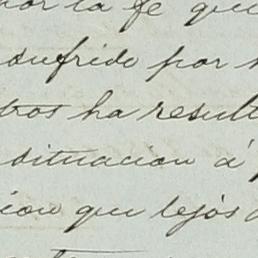 por la fé que
sufrido por
tros ha result
situacion á
cion que lejos